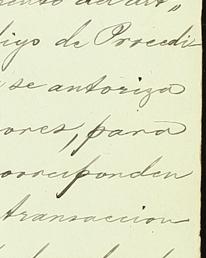 digo de Procedi
se autoriza
ores, para
corresponden
transaccion